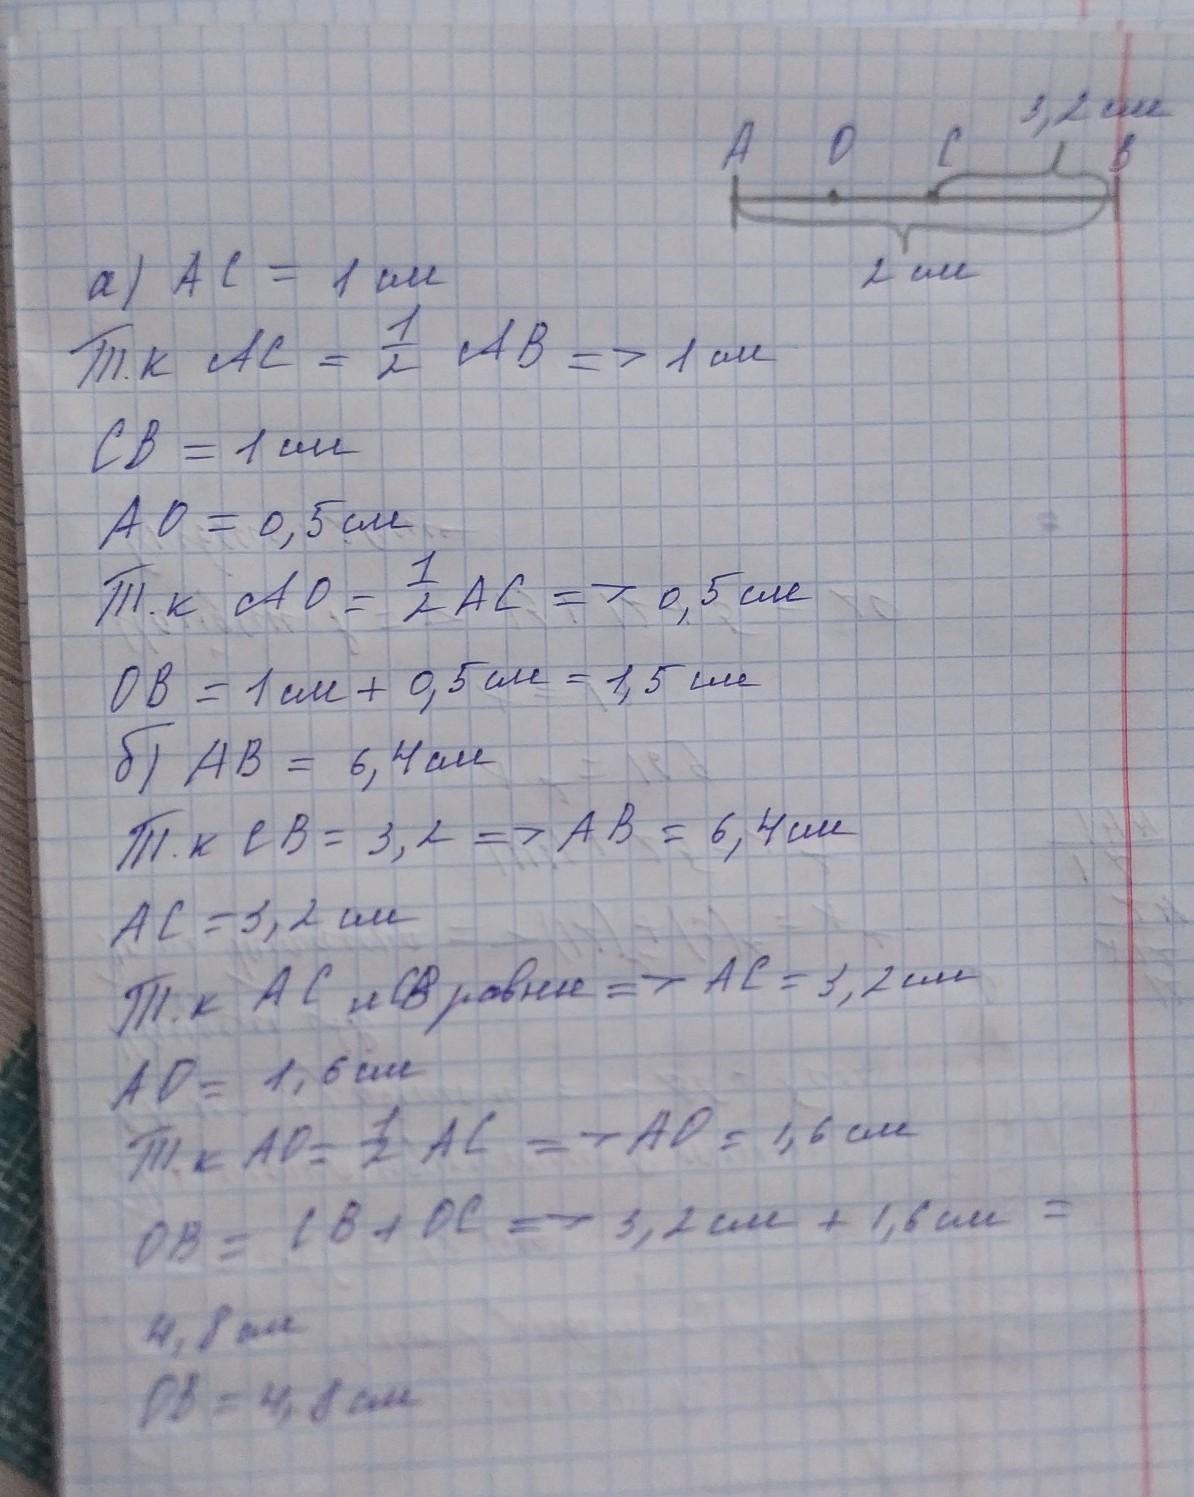 3,2 см
A O C B
2 см
а) AC = 1 см
Т.к AC = 1/2 AB => 1 см
CB = 1 см
AO = 0,5 см
Т.к AO = 1/2 AC => 0,5 см
OB = 1 см + 0,5 см = 1,5 см
б) AB = 6,4 см
Т.к CB = 3,2 => AB = 6,4 см
AC = 3,2 см
Т.к AC и CB равны => AC = 3,2 см
AO = 1,6 см
Т.к AO = 1/2 AC => AO = 1,6 см
OB = CB + OC => 3,2 см + 1,6 см =
4,8 см
OB = 4,8 см